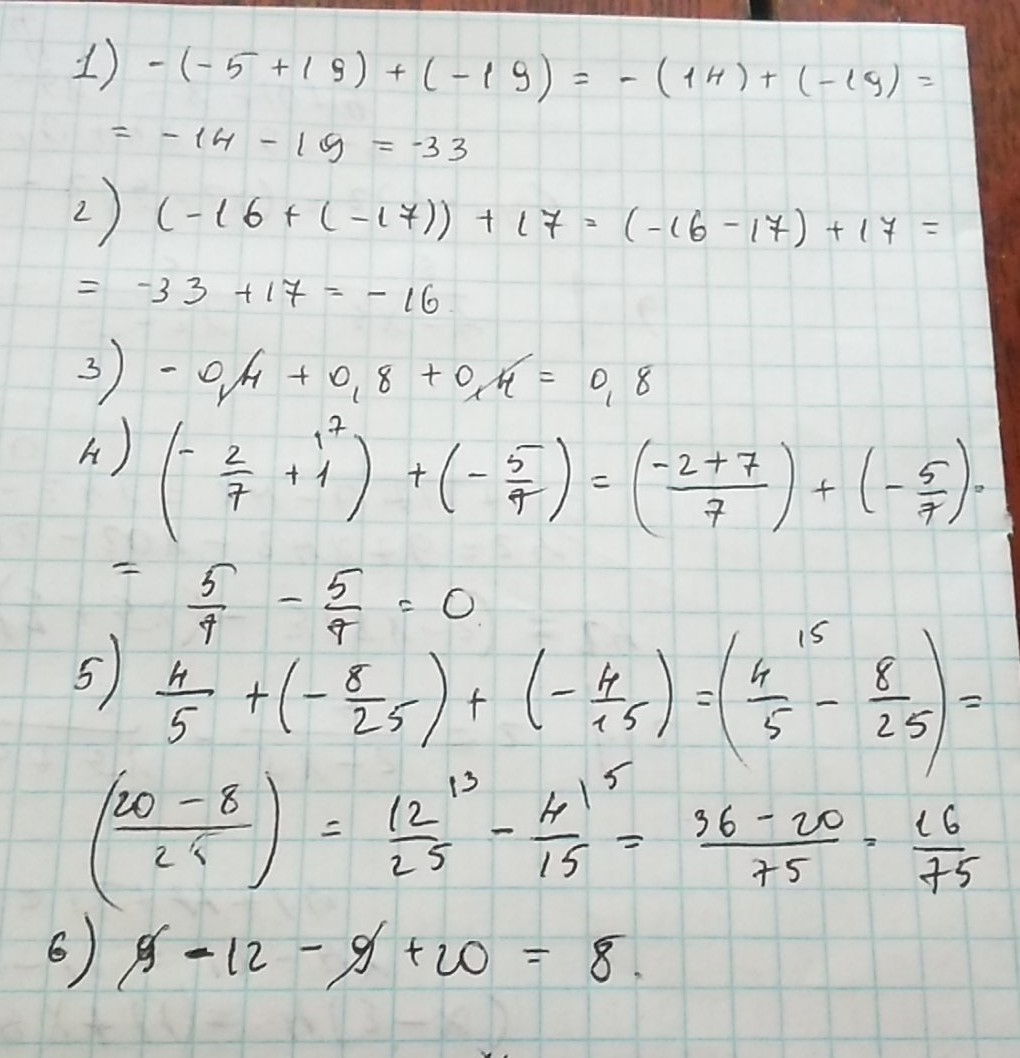 1) -(-5+19)+(-19) = -(14)+(-19) =
= -14 - 19 = -33
2) (-16+(-17))+17 = (-16-17)+17 =
= -33 +17 = -16
3) - 0,4 + 0,8 + 0,4 = 0,8
4) (- 2/7 + 1 \7) + (- 5/7) = ((-2+7)/7) + (- 5/7) =
= 5/7 - 5/7 = 0
5) 4/5 + (- 8/25) + (- 4/15) = (4/5 \5 - 8/25) =
((20 - 8)/25) = 12/25 \3 - 4/15 \5 = (36 - 20)/75 = 16/75
6) 9 - 12 - 9 + 20 = 8.